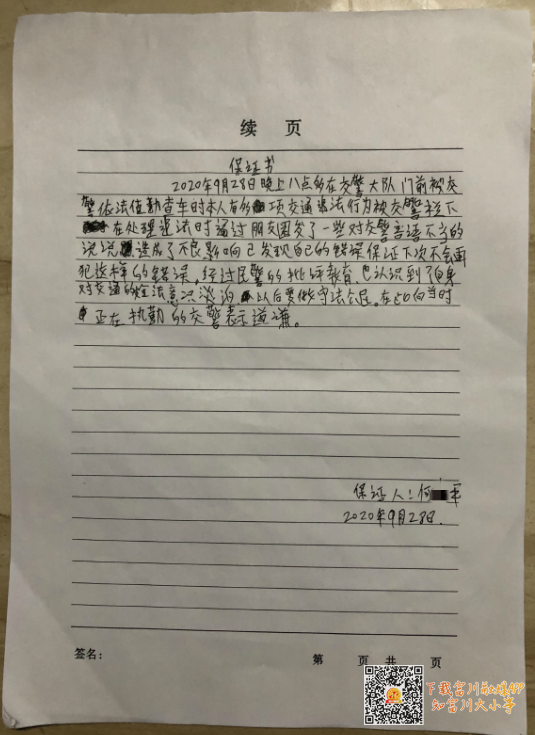 续 页
保证书
2020年9月28日晚上八点多在交警大队门前被交
警依法值勤查车时本人有多项交通违法行为被交警拦下
在处理违法时通过朋友圈发了一些对交警言语不当的
说说造成了不良影响已发现自己的错误保证下次不会再
犯这样的错误，经过民警的批评教育，已认识到了自身
对交通的法意识淡泊以后要做守法公民。在此向当时
正在执勤的交警表示道谦。
保证人：何 军
2020年9月28日.
签名：
第 页 共 页
下载富川融媒APP
知富川大小事